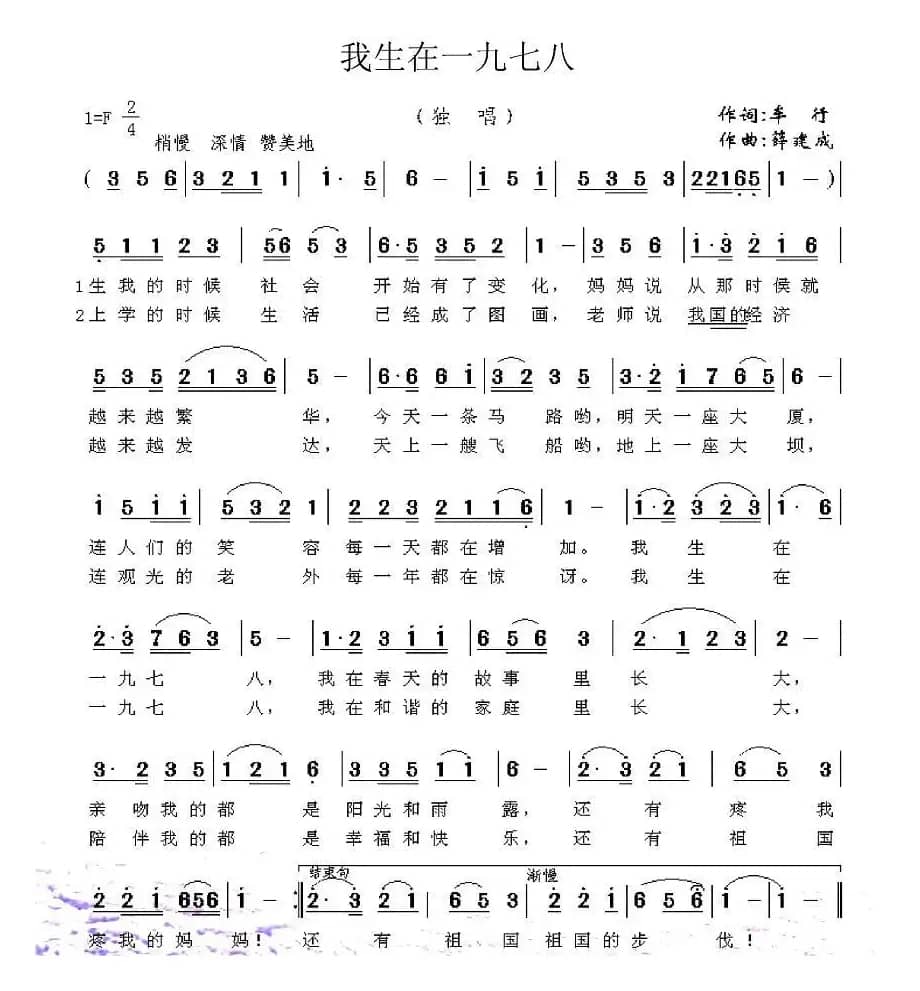 我生在一九七八
1=F 2/4
（独 唱）
作词:车 行
作曲:薛建成
稍慢 深情 赞美地
( 3 5 6 | 3 2 1 1 | i· 5 | 6 － | i 5 i | 5 3 5 3 | 2 2 1 6 5 | 1 － ) |
5 1 1 2 3 | 5 6 5 3 | 6·5 3 5 2 | 1 － | 3 5 6 | i·3 2 i 6 |
1生我的时候 社会 开始有了变化，妈妈说 从那时候就
2上学的时候 生活 已经成了图画，老师说 我国的经济
5 3 5 2 1 3 6 | 5 － | 6·6 6 i | 3 2 3 5 | 3·2 i 7 6 5 | 6 － |
越来越繁 华，今天一条马路哟，明天一座大厦，
越来越发 达，天上一艘飞船哟，地上一座大坝，
i 5 i i | 5 3 2 1 | 2 2 3 2 1 1 6 | 1 － | i·2 3 2 3 | i· 6 |
连人们的笑 容每一天都在增 加。我 生 在
连观光的老 外每一年都在惊 讶。我 生 在
2·3 7 6 3 | 5 － | 1·2 3 i i | 6 5 6 3 | 2· 1 2 3 | 2 － |
一九七 八，我在春天的 故事 里 长 大，
一九七 八，我在和谐的 家庭 里 长 大，
3· 2 3 5 | 1 2 1 6 | 3 3 5 1 i | 6 － | 2· 3 2 i | 6 5 3 |
亲 吻我的都 是 阳光和雨 露，还 有 疼 我
陪 伴我的都 是 幸福和快 乐，还 有 祖 国
结束句
渐慢
2 2 i 6 5 6 | i － :| 2· 3 2 i | 6 5 3 | 2 2 i | 6 5 6 | i － | i － ‖
疼我的妈 妈！ 还 有 祖 国祖国的步 伐！